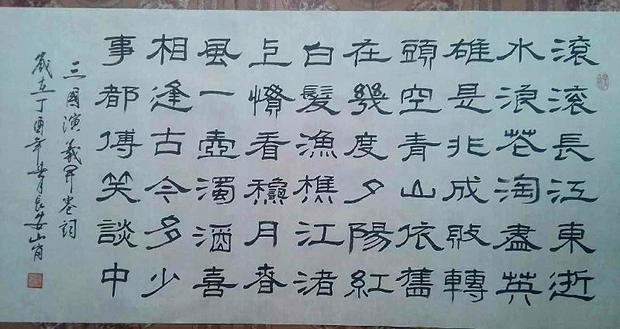 滚滚長江東逝
水浪花淘盡英
雄是非成敗轉
頭空青山依舊
在幾度夕陽紅
白髮漁樵江渚
上慣看穐月春
風一壺濁酒喜
相逢古今多少
事都傅笑談中
三國演義開卷詞
歲在丁酉年月長安山肖